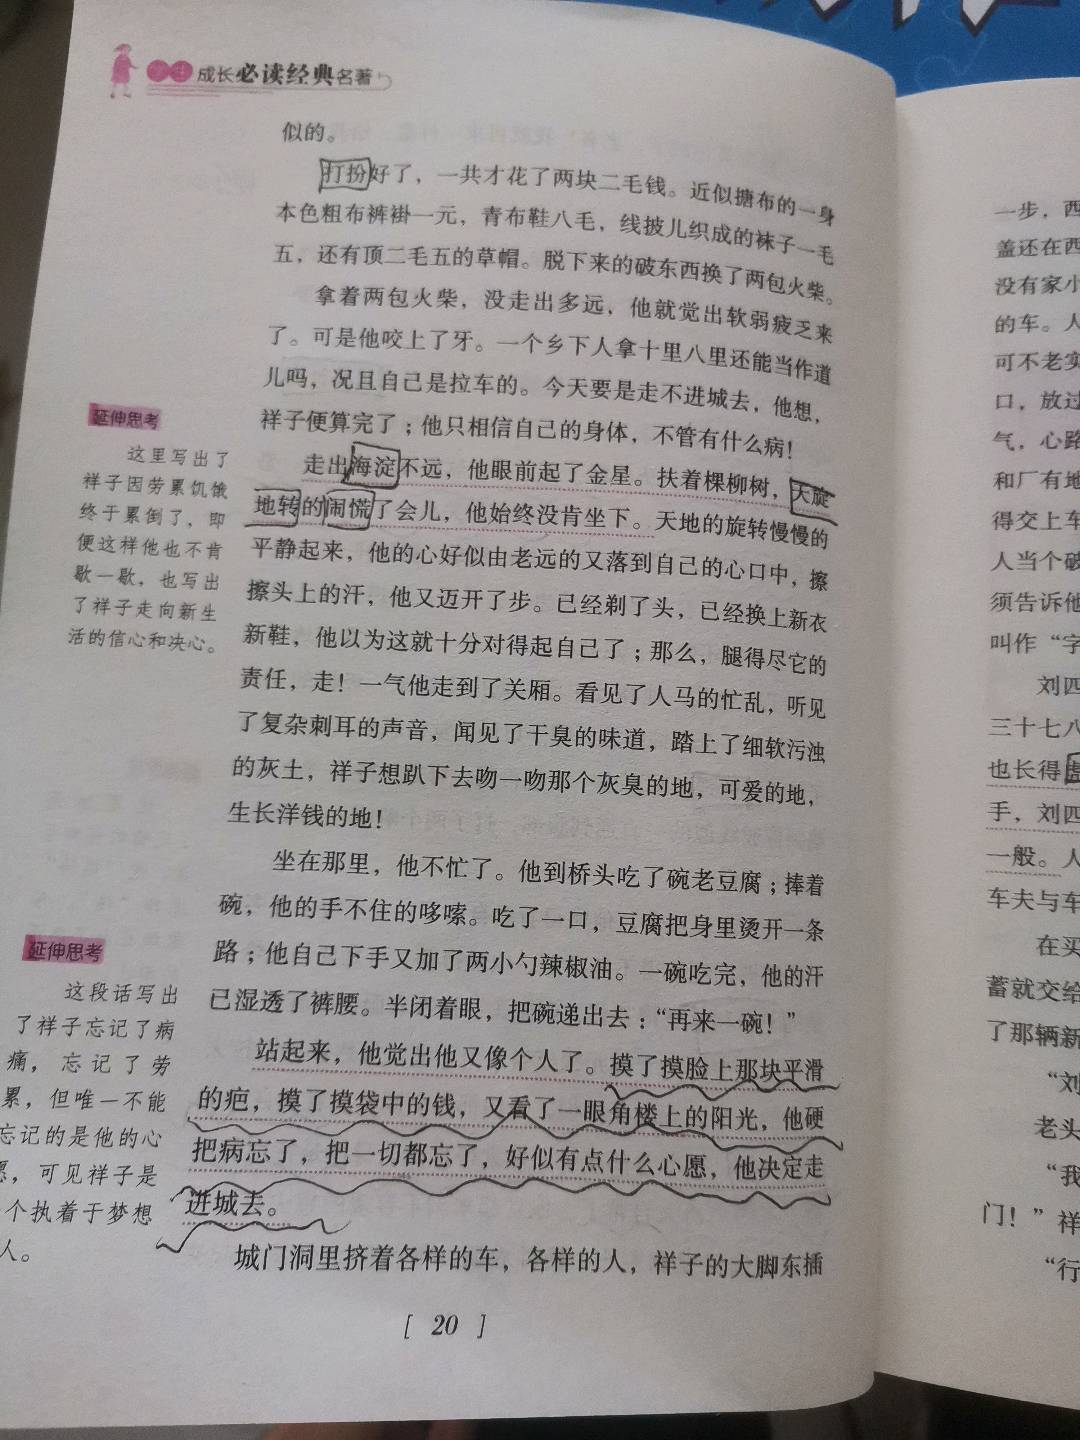 成长必读经典名著
似的。
打扮好了，一共才花了两块二毛钱。近似搪布的一身
本色粗布裤褂一元，青布鞋八毛，线披儿织成的袜子一毛
五，还有顶二毛五的草帽。脱下来的破东西换了两包火柴。
拿着两包火柴，没走出多远，他就觉出软弱疲乏来
了。可是他咬上了牙。一个乡下人拿十里八里还能当作道
儿吗，况且自己是拉车的。今天要是走不进城去，他想，
祥子便算完了；他只相信自己的身体，不管有什么病！
走出海淀不远，他眼前起了金星。扶着棵柳树，天旋
地转的闹慌了会儿，他始终没肯坐下。天地的旋转慢慢的
平静起来，他的心好似由老远的又落到自己的心口中，擦
擦头上的汗，他又迈开了步。已经剃了头，已经换上新衣
新鞋，他以为这就十分对得起自己了；那么，腿得尽它的
责任，走！一气他走到了关厢。看见了人马的忙乱，听见
了复杂刺耳的声音，闻见了干臭的味道，踏上了细软污浊
的灰土，祥子想趴下去吻一吻那个灰臭的地，可爱的地，
生长洋钱的地！
坐在那里，他不忙了。他到桥头吃了碗老豆腐；捧着
碗，他的手不住的哆嗦。吃了一口，豆腐把身里烫开一条
路；他自己下手又加了两小勺辣椒油。一碗吃完，他的汗
已湿透了裤腰。半闭着眼，把碗递出去：“再来一碗！”
站起来，他觉出他又像个人了。摸了摸脸上那块平滑
的疤，摸了摸袋中的钱，又看了一眼角楼上的阳光，他硬
把病忘了，把一切都忘了，好似有点什么心愿，他决定走
进城去。
城门洞里挤着各样的车，各样的人，祥子的大脚东插
[ 20 ]
延伸思考
这里写出了
祥子因劳累饥饿
终于累倒了，即
便这样他也不肯
歇一歇，也写出
了祥子走向新生
活的信心和决心。
延伸思考
这段话写出
了祥子忘记了病
痛，忘记了劳
累，但唯一不能
忘记的是他的心
愿，可见祥子是
个执着于梦想
人。
一步，西
盖还在西
没有家小
的车。人
可不老实
口，放过
气，心路
和厂有地
得交上车
人当个破
须告诉他
叫作“字
刘四
三十七八
也长得
手，刘四
一般。人
车夫与车
在买
蓄就交给
了那辆新
“刘
老头
“我
门！”祥
“行